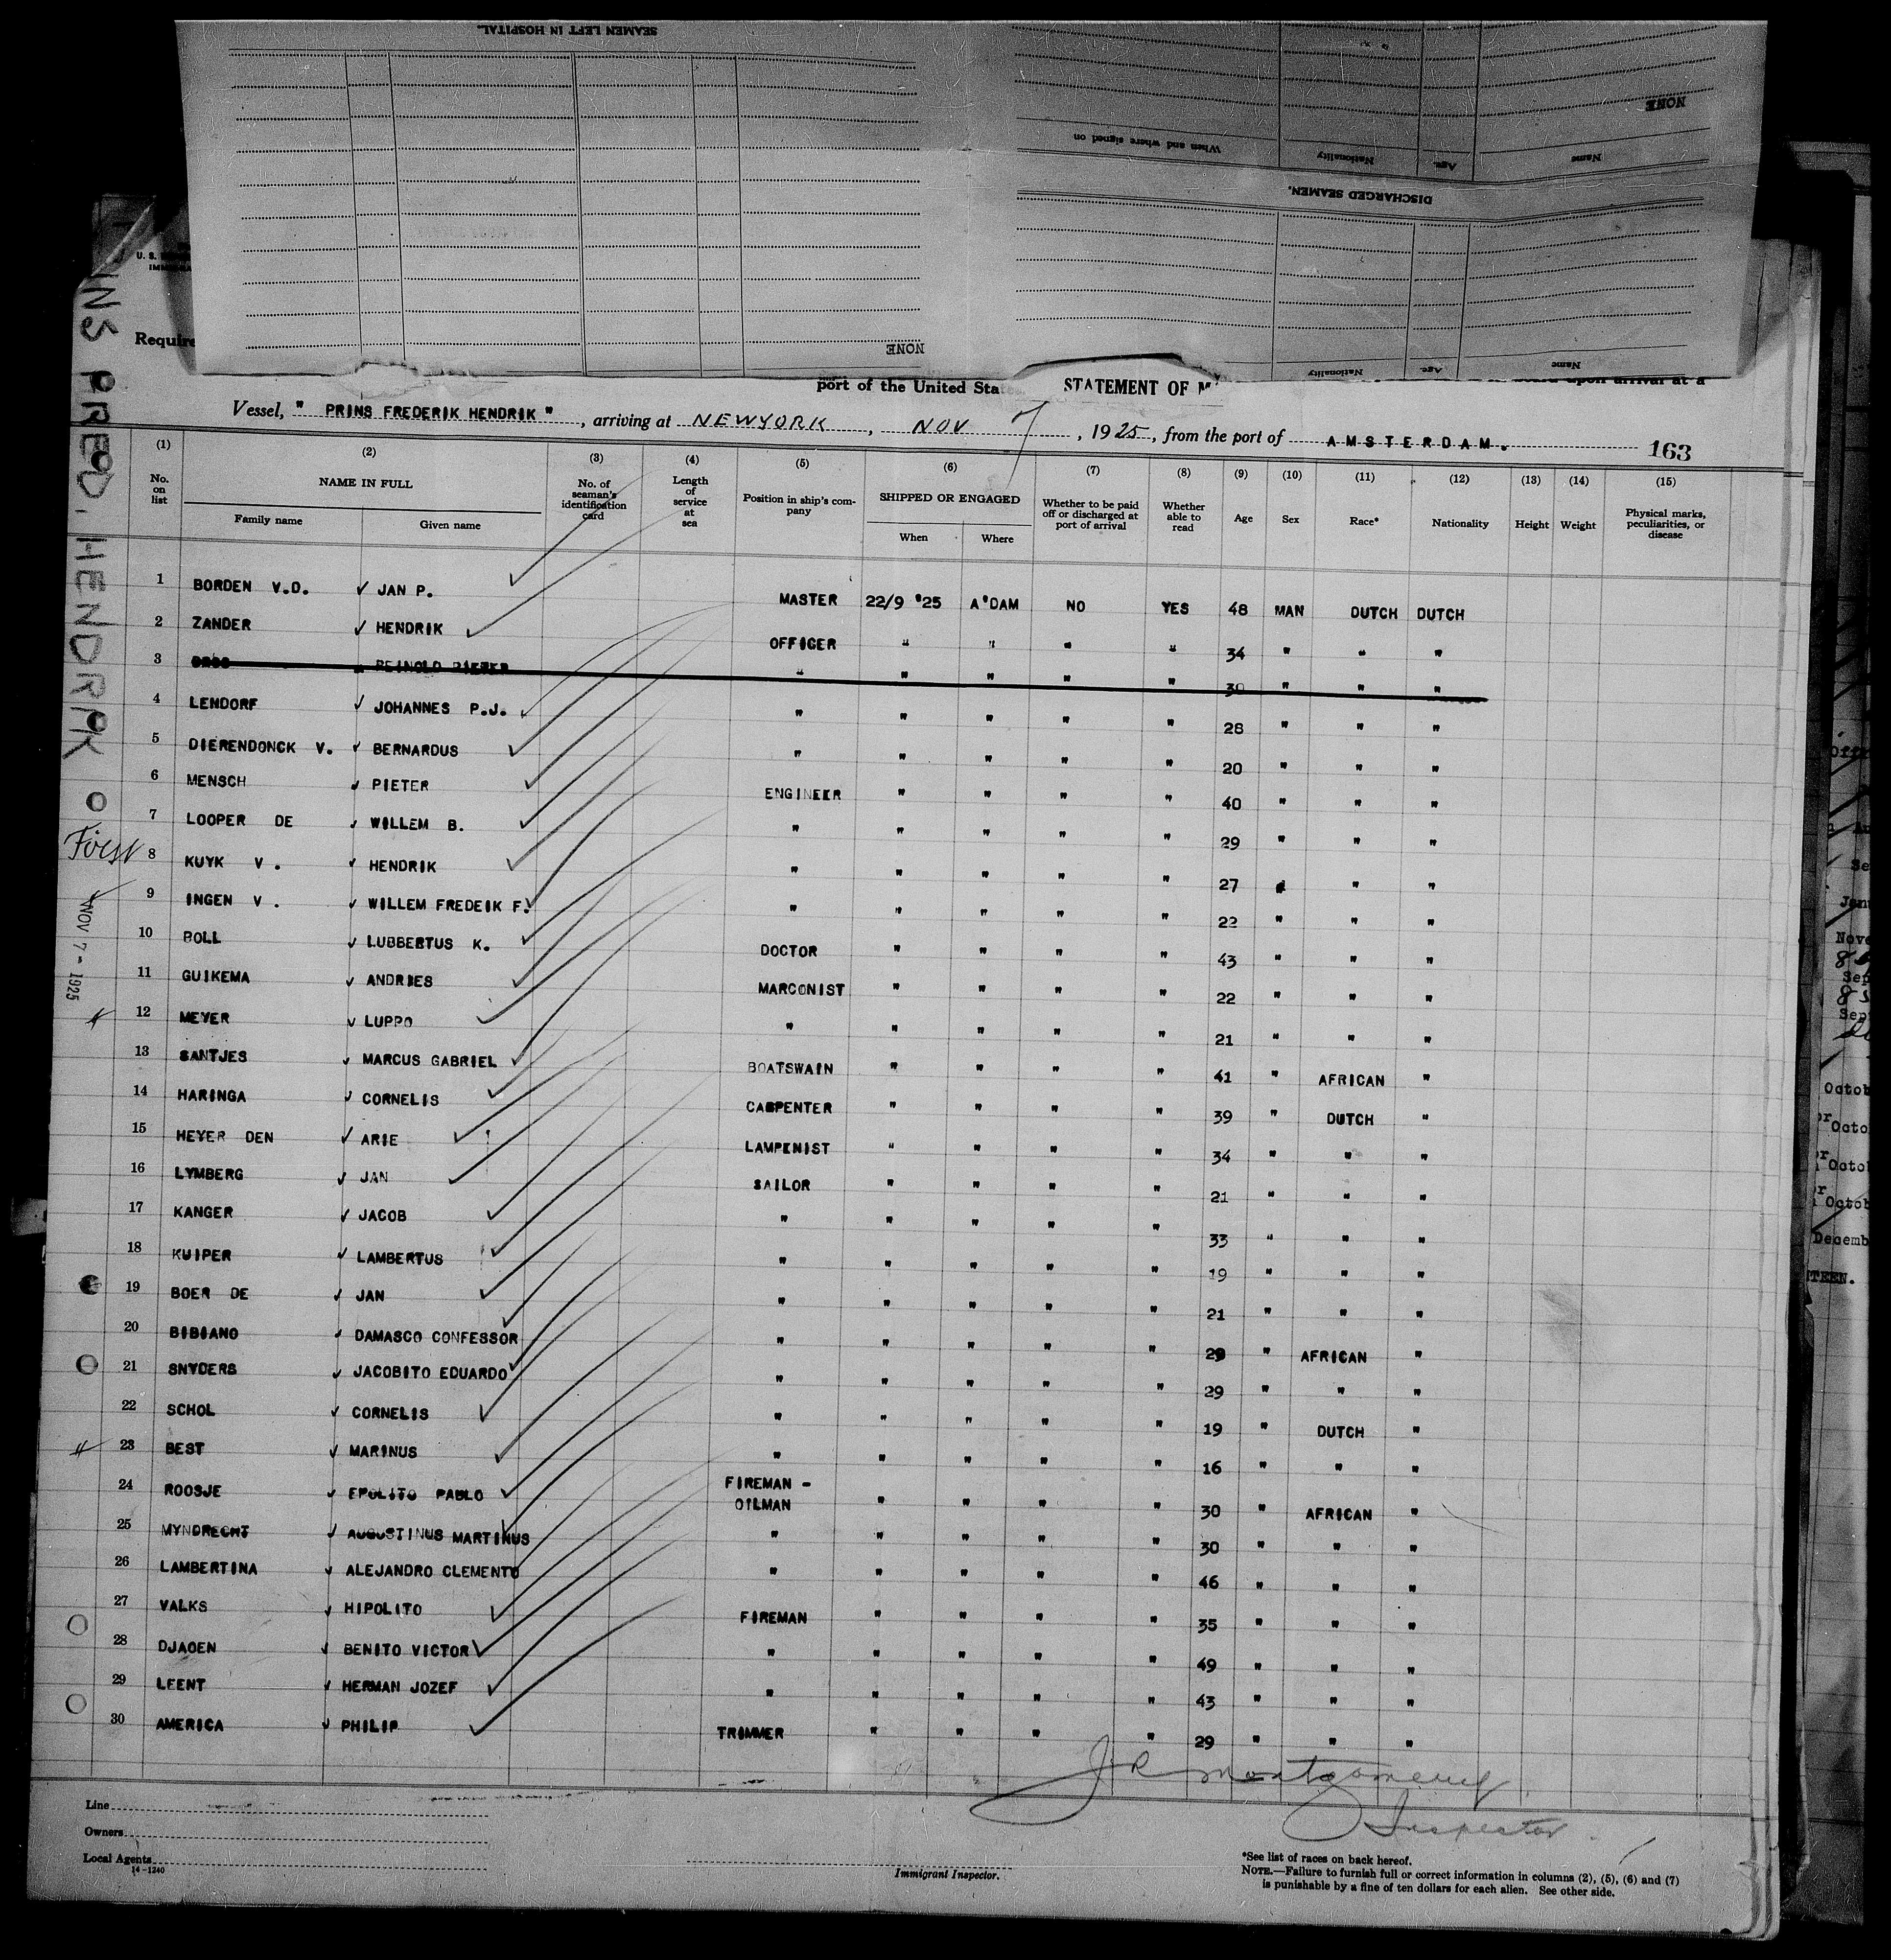 SEAMEN LEFT IN HOSPITAL.
NONE
When and where signed on
Nationality
Age.
Name
DISCHARGED SEAMEN.
NONE
Nationality
Age.
Name
U. S.
Require
port of the United Sta
STATEMENT OF M
upon arrival at a
Vessel, " PRINS FREDERIK HENDRIK ", arriving at NEWYORK, NOV 7, 1925, from the port of AMSTERDAM.
163
INS FRED. HENDRIK
(1) (2) (3) (4) (5) (6) (7) (8) (9) (10) (11) (12) (13) (14) (15)
No. on list
NAME IN FULL
Family name Given name
No. of seaman's identification card
Length of service at sea
Position in ship's company
SHIPPED OR ENGAGED
When Where
Whether to be paid off or discharged at port of arrival
Whether able to read
Age
Sex
Race*
Nationality
Height
Weight
Physical marks, peculiarities, or disease
1 BORDEN V.D. JAN P. MASTER 22/9 '25 A'DAM NO YES 48 MAN DUTCH DUTCH
2 ZANDER HENDRIK OFFICER " " " " 34 " " "
3 REINOLD PIETER " " " " " 30 " " "
4 LENDORF JOHANNES P.J. " " " " " 28 " " "
5 DIERENDONCK V. BERNARDUS " " " " " 20 " " "
6 MENSCH PIETER ENGINEER " " " " 40 " " "
7 LOOPER DE WILLEM B. " " " " " 29 " " "
8 KUYK V. HENDRIK " " " " " 27 " " "
9 INGEN V. WILLEM FREDEIK F. " " " " " 22 " " "
10 BOLL LUBBERTUS K. DOCTOR " " " " 43 " " "
11 GUIKEMA ANDRIES MARCONIST " " " " 22 " " "
12 MEYER LUPPO " " " " " 21 " " "
13 SANTJES MARCUS GABRIEL BOATSWAIN " " " " 41 " AFRICAN "
14 HARINGA CORNELIS CARPENTER " " " " 39 " DUTCH "
15 HEYER DEN ARIE LAMPENIST " " " " 34 " " "
16 LYMBERG JAN SAILOR " " " " 21 " " "
17 KANGER JACOB " " " " " 33 " " "
18 KUIPER LAMBERTUS " " " " " 19 " " "
19 BOER DE JAN " " " " " 21 " " "
20 BIBIANO DAMASCO CONFESSOR " " " " " 29 " AFRICAN "
21 SNYDERS JACOBITO EDUARDO " " " " " 29 " " "
22 SCHOL CORNELIS " " " " " 19 " DUTCH "
23 BEST MARINUS " " " " " 16 " " "
24 ROOSJE EPOLITO PABLO FIREMAN - OILMAN " " " " 30 " AFRICAN "
25 MYNDRECHT AUGUSTINUS MARTINUS " " " " " 30 " " "
26 LAMBERTINA ALEJANDRO CLEMENTO " " " " " 46 " " "
27 VALKS HIPOLITO FIREMAN " " " " 35 " " "
28 DJAOEN BENITO VICTOR " " " " " 49 " " "
29 LEENT HERMAN JOZEF " " " " " 43 " " "
30 AMERICA PHILIP TRIMMER " " " " 29 " " "
NOV 7 - 1925
J R Montgomery
Inspector
Line
Owners
Local Agents
14-1240
Immigrant Inspector.
*See list of races on back hereof.
NOTE.—Failure to furnish full or correct information in columns (2), (5), (6) and (7)
is punishable by a fine of ten dollars for each alien. See other side.